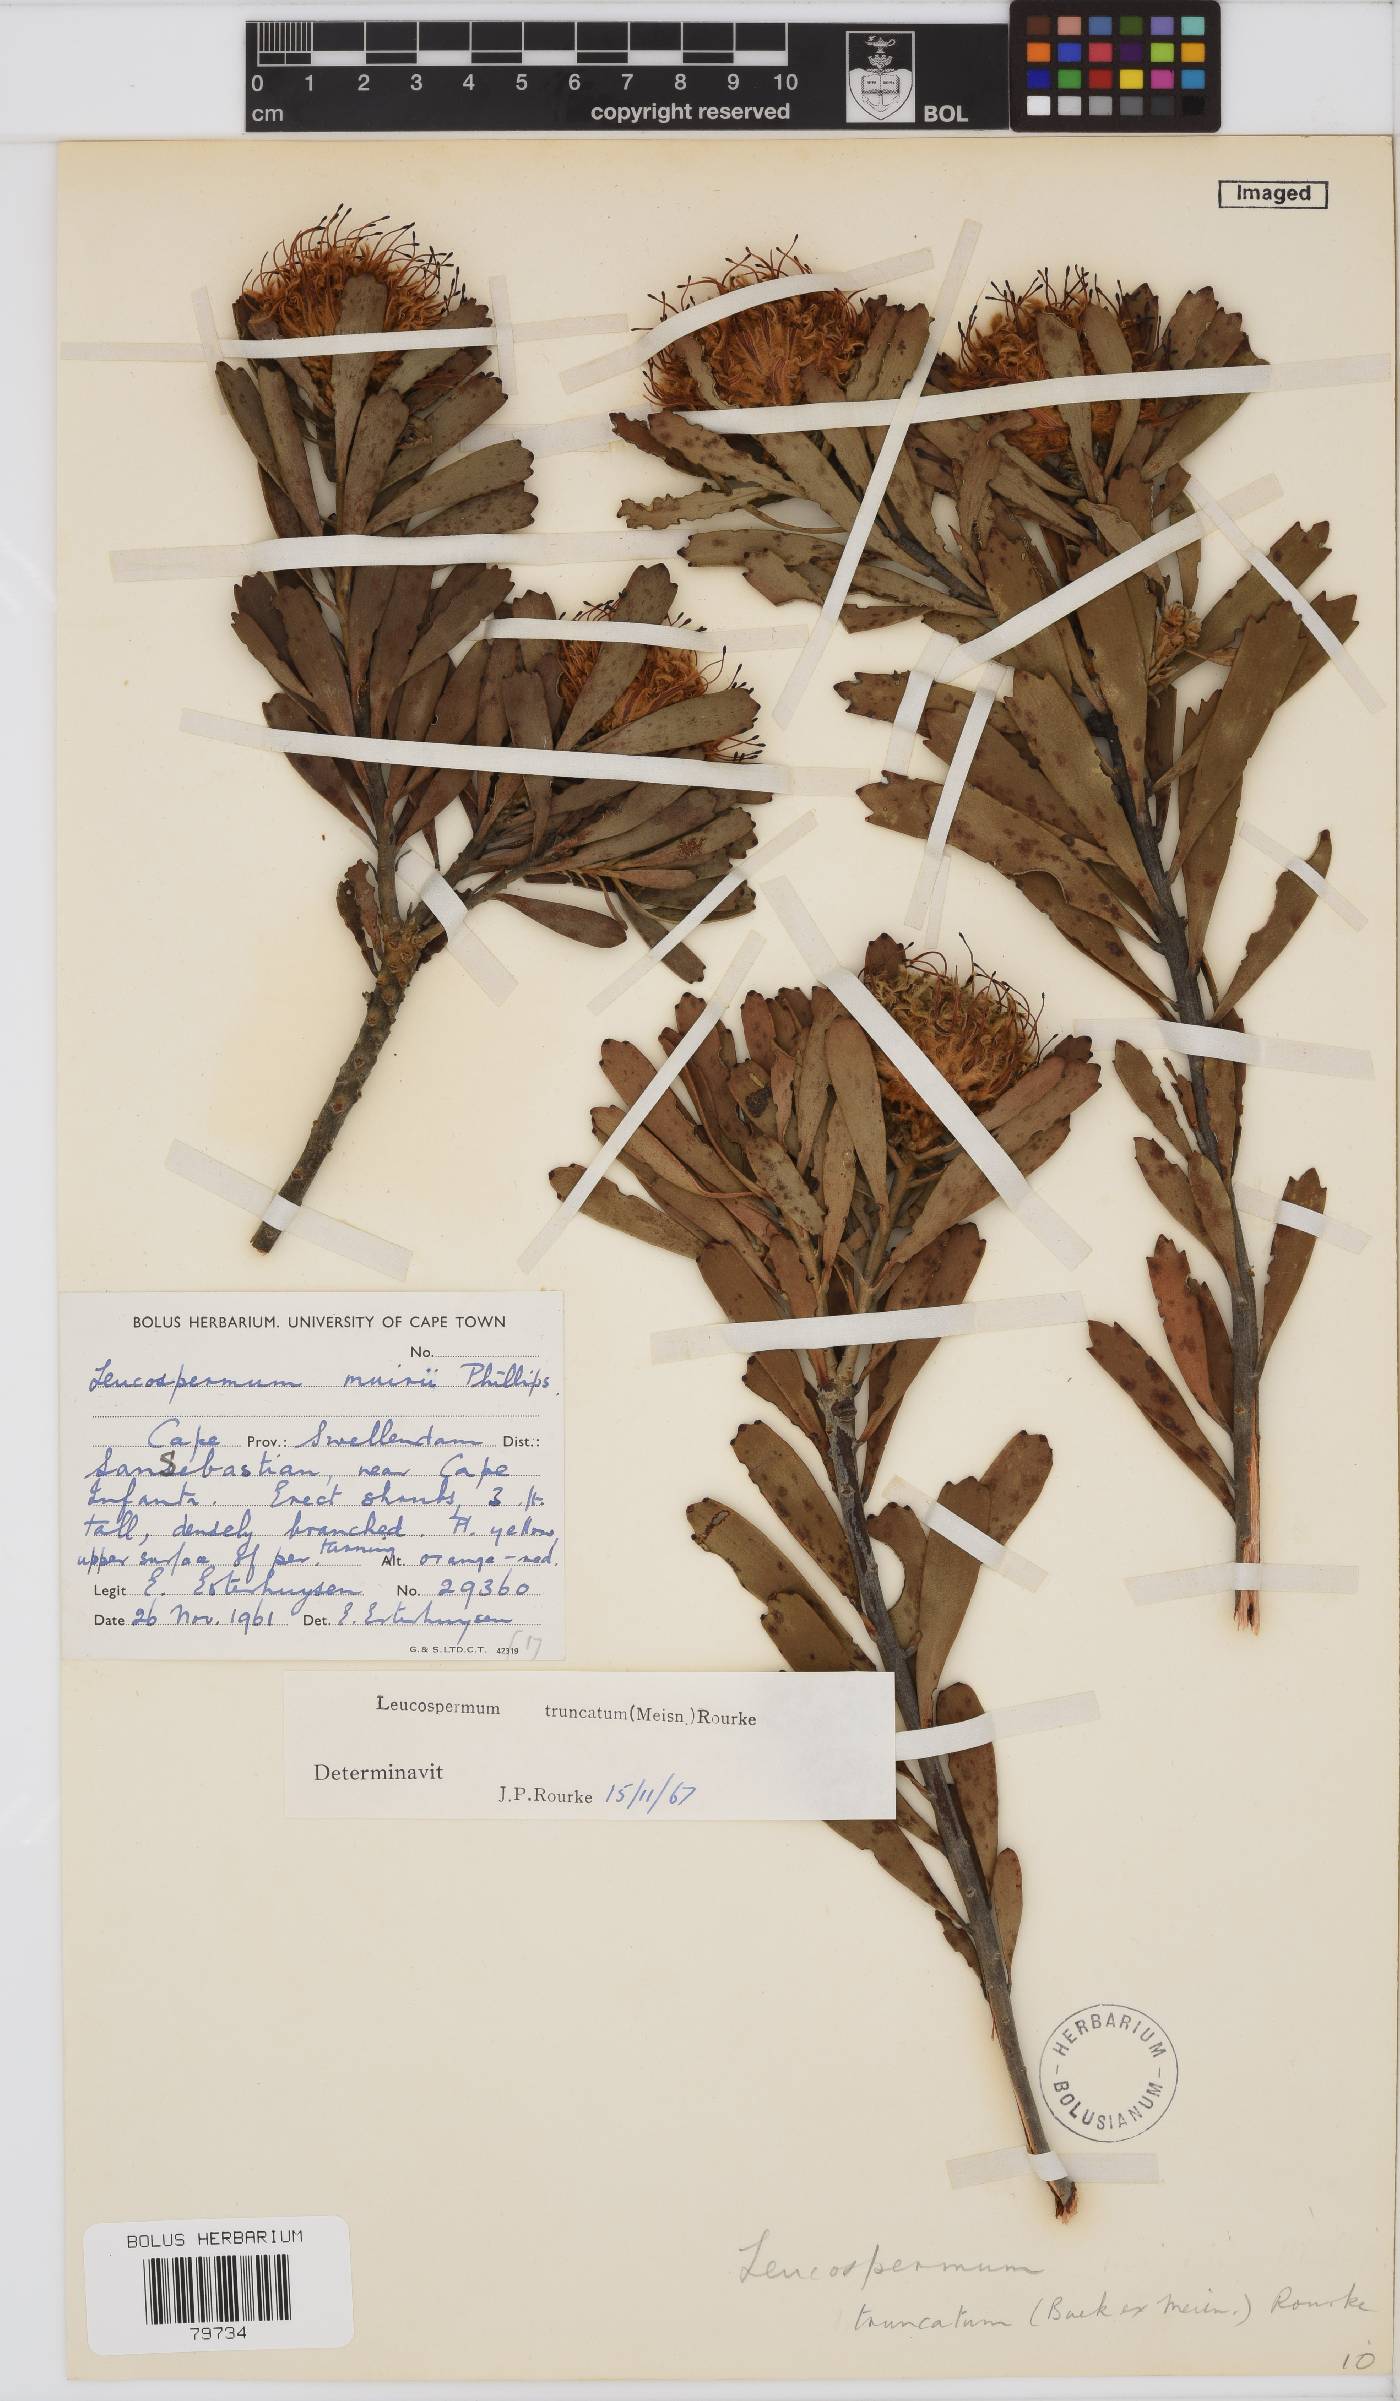 0 1 2 3 4 5 6 7 8 9 10
cm copyright reserved BOL
Imaged
BOLUS HERBARIUM. UNIVERSITY OF CAPE TOWN
No.
Leucospermum muirii Phillips.
Cape Prov.: Swellendam Dist.:
San Sebastian, near Cape
Infanta. Erect shrubs, 3 ft.
tall, densely branched. Fl. yellow,
upper surface of per. turning Alt. orange-red.
Legit E. Esterhuysen No. 29360
Date 26 Nov. 1961 Det. E. Esterhuysen
G. & S. LTD. C.T. 42319
Leucospermum truncatum (Meisn.) Rourke
Determinavit
J.P. Rourke 15/11/67
HERBARIUM
BOLUSIANUM
BOLUS HERBARIUM
79734
Leucospermum
truncatum (Buek ex Meisn.) Rourke
10